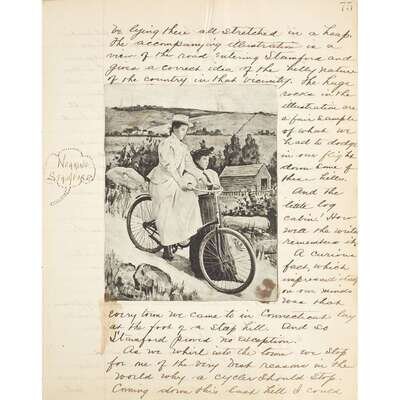 75
be lying there all stretched in a heap.
The accompanying illustration is a
view of the road entering Stamford and
gives a correct idea of the hilly nature
of the country in that vicinity. The huge
rocks in the
illustration are
a fair sample
of what we
had to dodge
in our flight
down some of
these hills.
And the
little log
cabin! How
well the writer
remembers it,
A curious
fact, which
impressed itself
on our minds
was that
every town we came to in Connecticut lay
at the foot of a steep hill. And so
Stamford proved no exception.
As we whirl into the town we stop
for one of the very best reasons in the
world why a cycler should stop.
Coming down this last hill I could